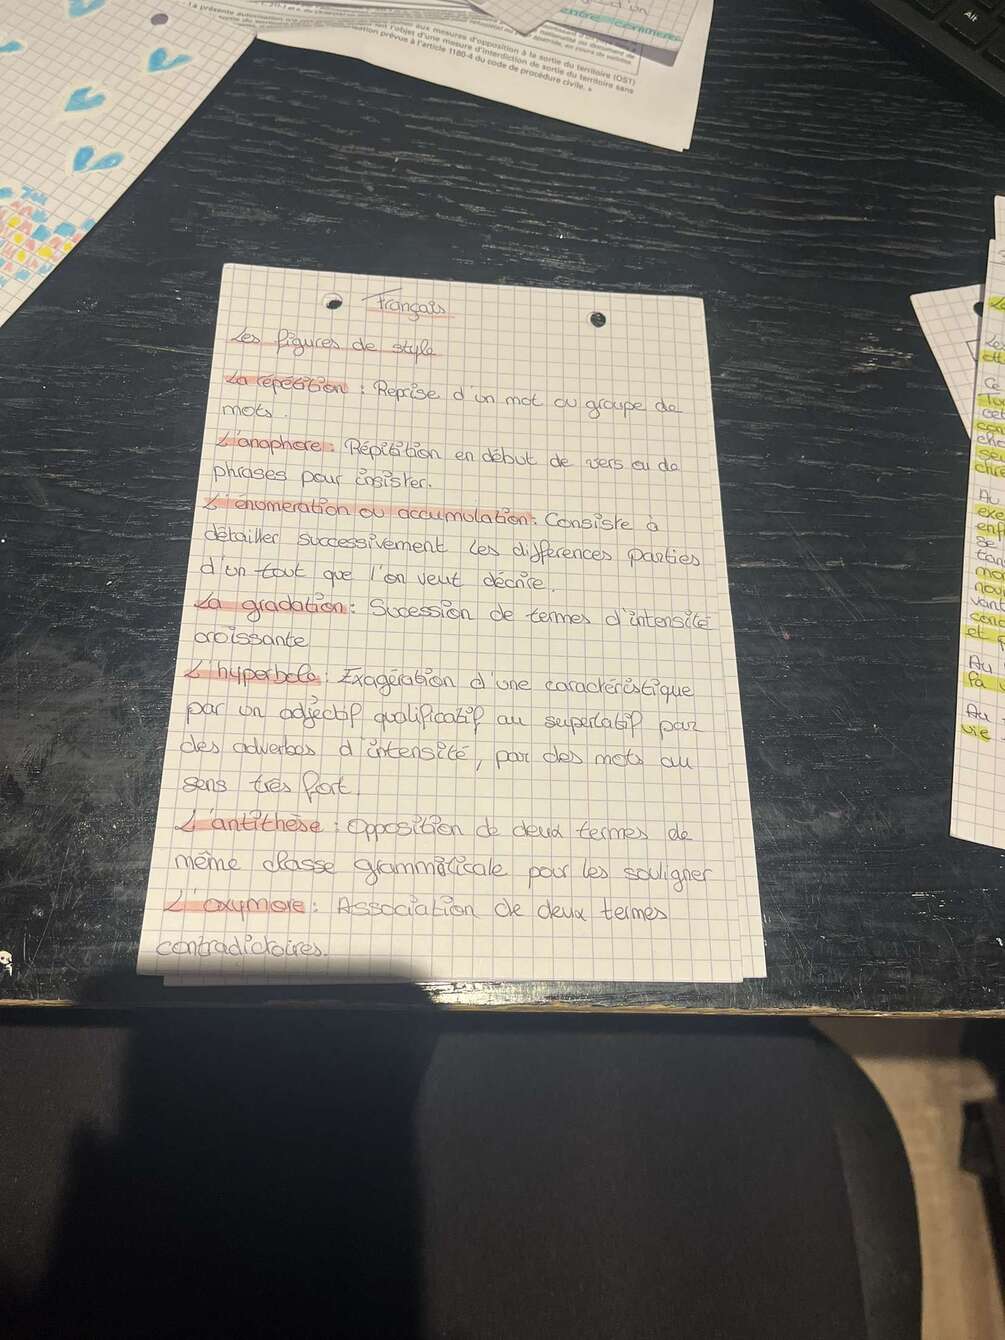 aux mesures d'opposition à la sortie du territoire (OST)
l'objet d'une mesure d'interdiction de sortie du territoire sans
prévue à l'article 1180-4 du code de procédure civile. »
Alt
Français
Les figures de style
La répétition : Reprise d'un mot ou groupe de
mots.
L'anaphore : Répétition en début de vers ou de
phrases pour insister.
L'énumeration ou accumulation : Consiste à
détailler successivement les différences parties
d'un tout que l'on veut décrire.
La gradation : Sucession de termes d'intensité
croissante
L'hyperbole : Exagération d'une caractéristique
par un adjectif qualificatif au superlatif par
des adverbes d'intensité, par des mots au
sens très fort.
L'antithèse : Opposition de deux termes de
même classe grammaticale pour les souligner
L'oxymore : Association de deux termes
contradictoires.
Au
et
Au
Au
vie